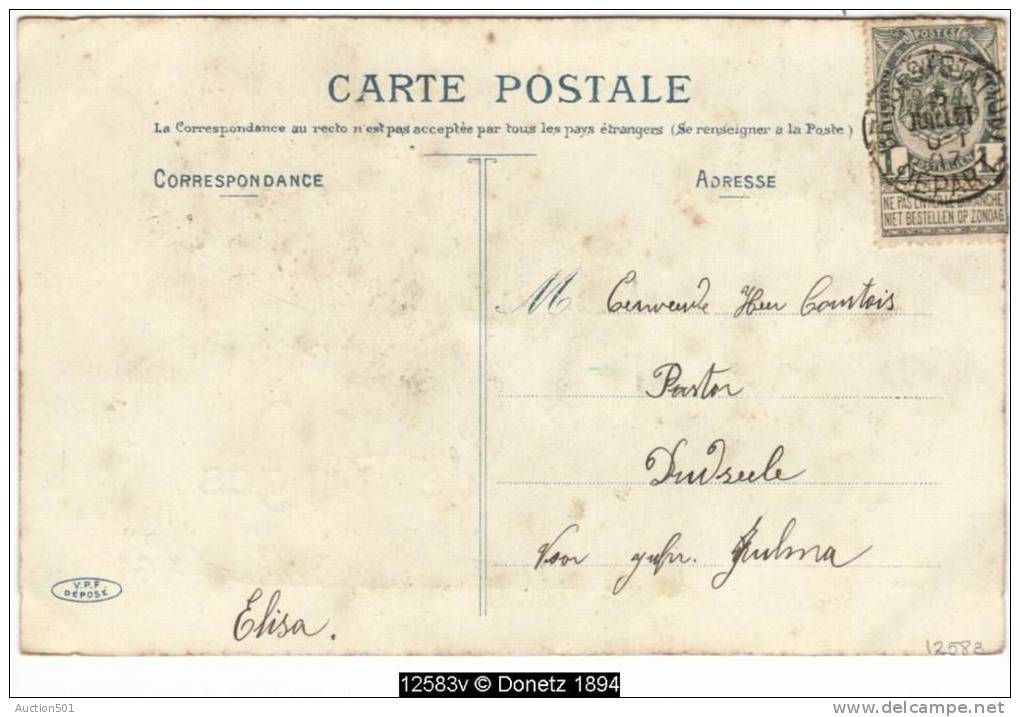 CARTE POSTALE
La Correspondance au recto n'est pas acceptée par tous les pays étrangers (Se renseigner a la Poste)
CORRESPONDANCE
ADRESSE
POSTES
5
JUILLET
DEPART
1 1
NE PAS LIVRER LE DIMANCHE
NIET BESTELLEN OP ZONDAG
M Eerweerde Heer Courtois
Pastor
Dudzeele
Voor Julma
V.P.F.
DÉPOSÉ
Elisa.
12583
12583v © Donetz 1894
Auction501
delcampe.net